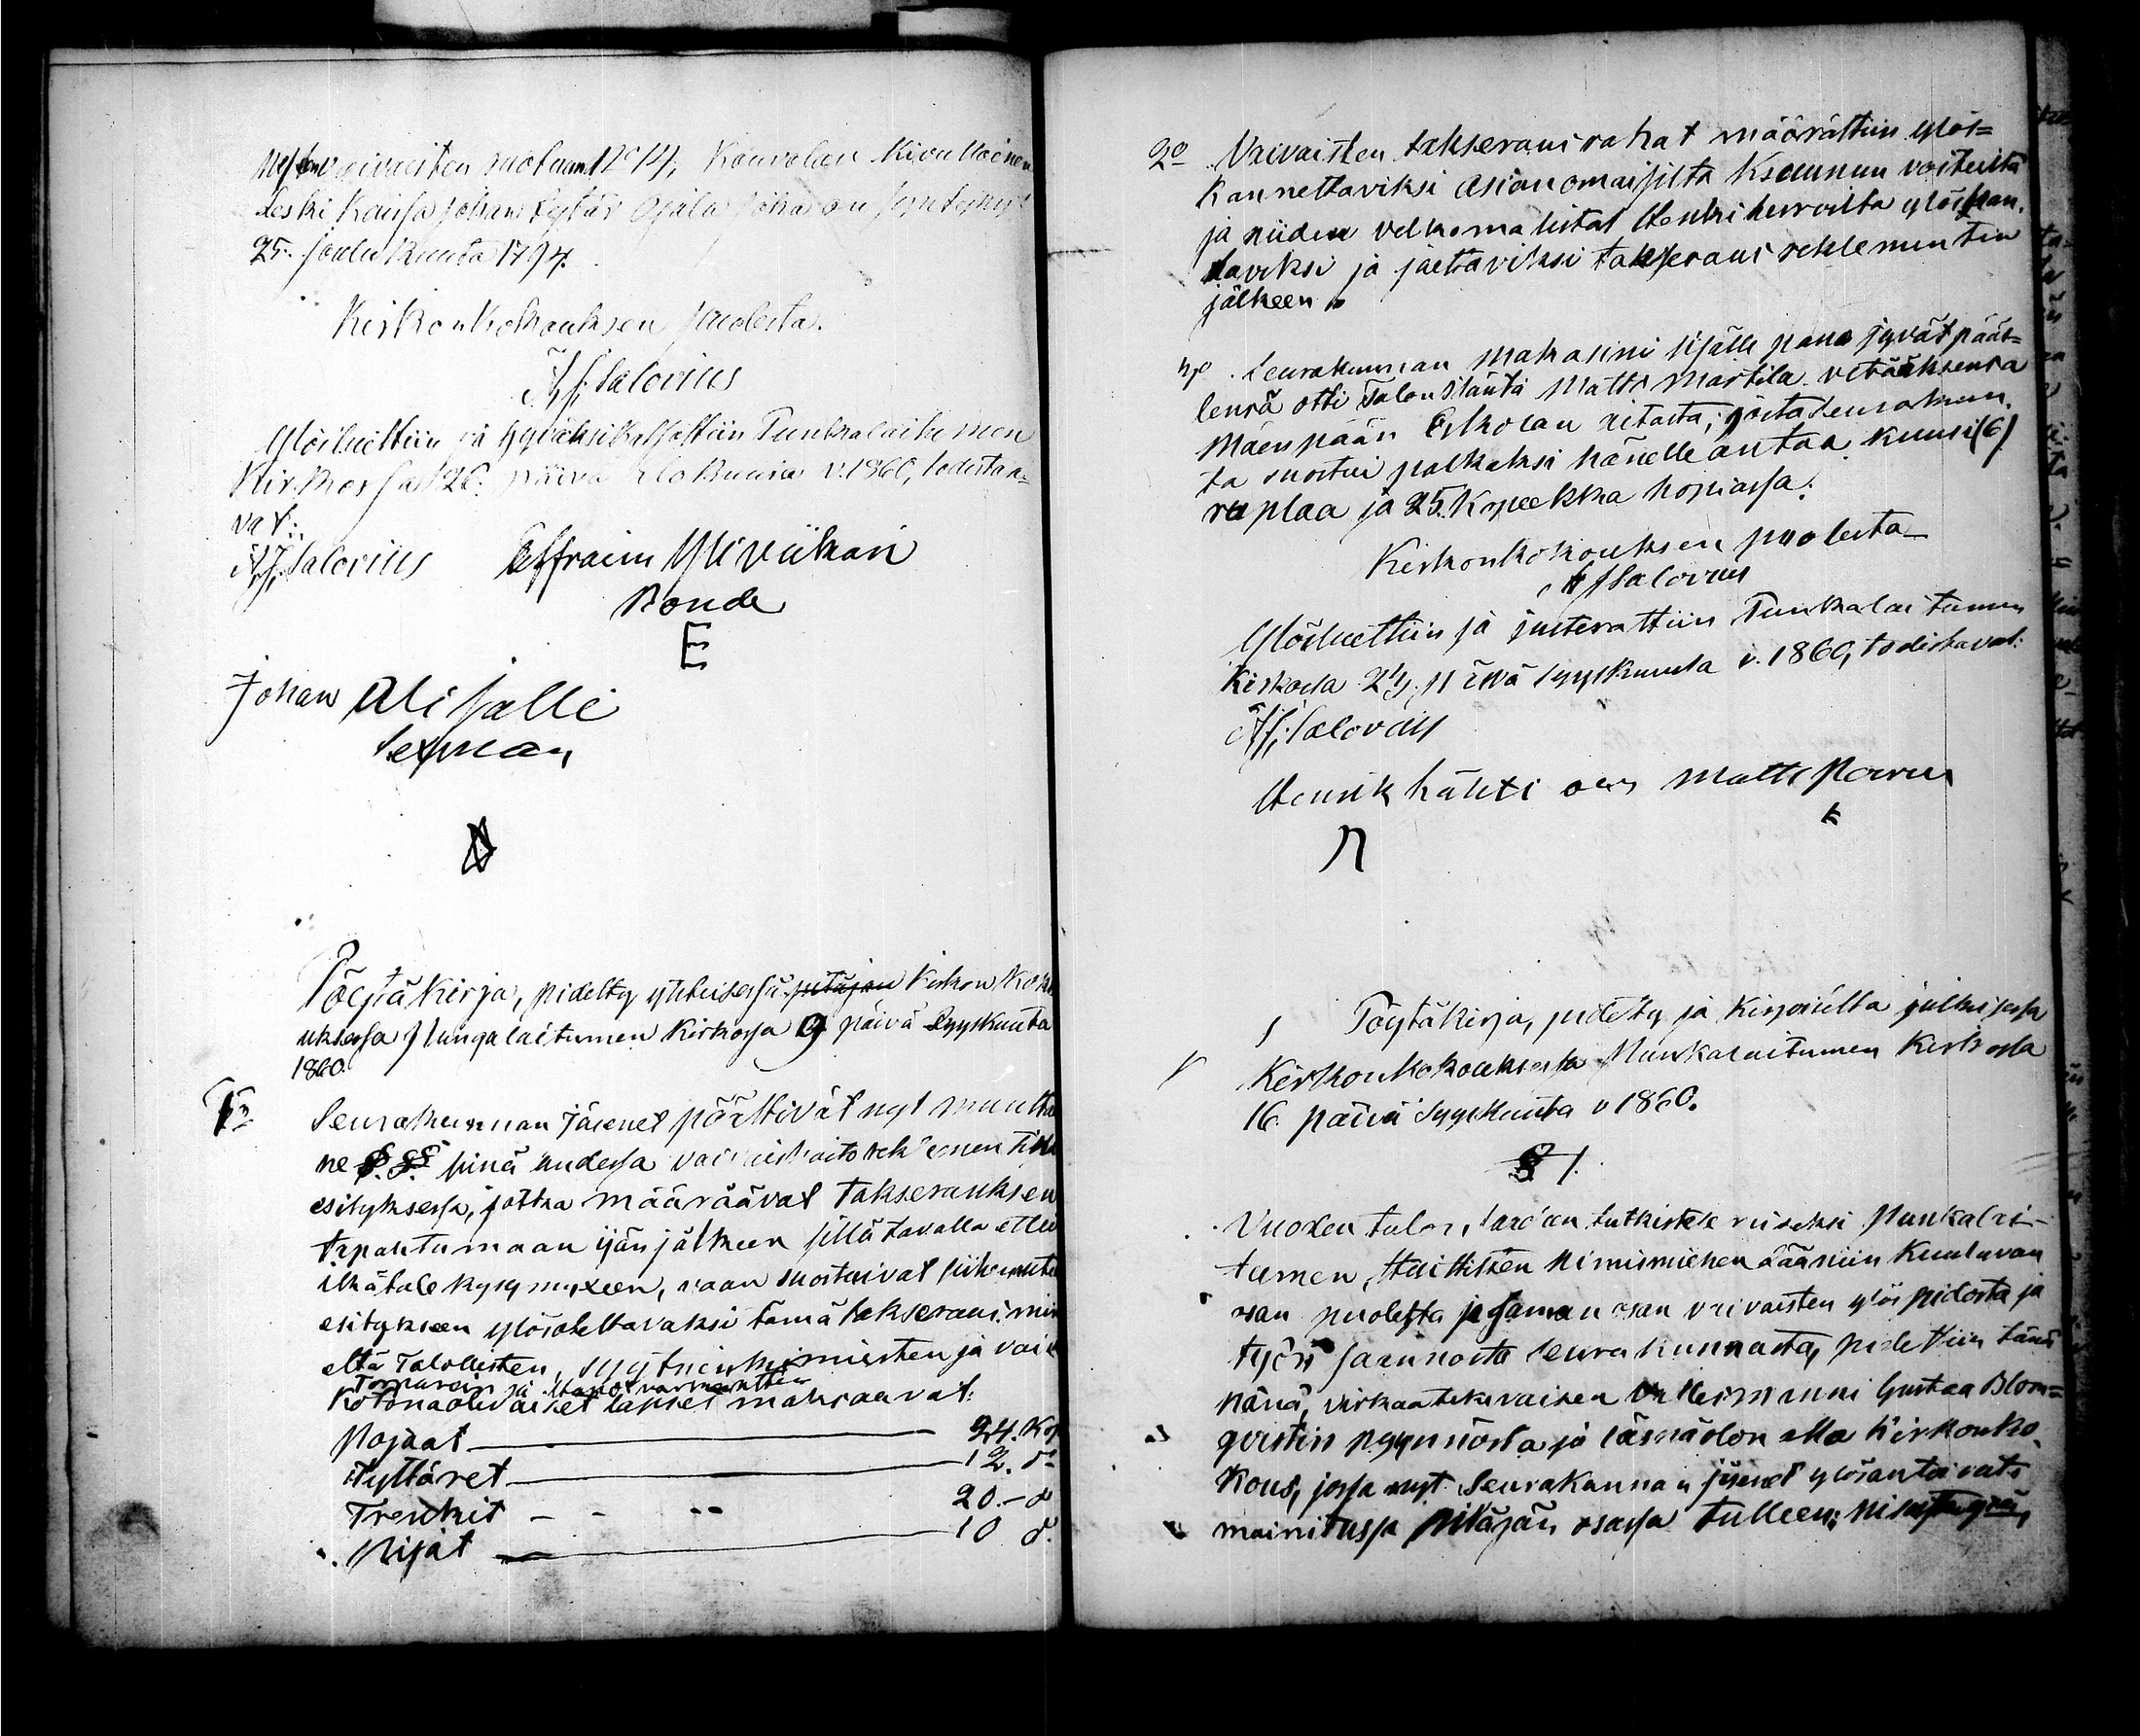 vaivaisten ruotuun N:o 14, Kouvolan Kivulloinen
Leski Kaisa Johan tytär Ojala joka on syntynyt
25. Joulukuuta 1794.
Kirkonkokouksen puolesta.
A. J. Salovius
Ylösluettiin ja hyväksikatsottiin Punkalaitumen
Kirkossa 26. päivä Elokuuta v. 1860, todista-
vat:
A. J. Salovius Effraim Yli Viikari
Bonde
E
Johan Ali Jalli
Sexman
Pöytäkirja, pidetty yhteisessä pitäjän Kirkon Koko
uksessa Pungalaitumen Kirkossa 9 päivä Syyskuuta
1860.
1:o
Seurakunnan Jäsenet päättivät nyt muutta
ne §. §§ siinä uudessa vaivaishoito reklementin
esityksessä, jotka määräävät Takserauksen
tapahtumaan ijän jälkeen sillä tavalla ettei
ikä tule kysymyxeen, vaan suostuivat
esitykseen ylösotettavaksi tämä takseraus, niin
että Talollisten,
Torpparein ja
Kotonaolevaiset lapset maksaavat:
Pojaat 24. Kop
Tyttäret 12. d:o
Trenkit - - - 20.- d
Piijat 10 d.
2:o Vaivaisten takseraus rahat määrättiin ylös=
Kannettaviksi asianomaisilta Ksaunun voiteista
ja niiden velkoma listat Henki herroilta ylöskan-
taviksi ja jaettaviksi takseraus reklementin
jälkeen
Seurakunnan Makasini sisälle pano jyvät pääl=
lensä otti Talon Isäntä Matti Martila vetääksensä
Mäenpään Erkolan aitasta; josta Seurakun-
ta suostui palkaksi hänelle antaa Kuusi (6)
ruplaa ja 25. Kopeekkaa hopiassa.
Kirkonkokouksen puolesta
A J Salovius
Ylösluettiin ja justerattiin Punkalaitumen
Kirkossa 23. päivä Syyskuuta v. 1860, todistavat:
A. J. Salovius
Henrik Lähti Matti
Pöytäkirja, pidetty ja Kirjoitettu julkisessa
Kirkonkokouksessa Punkalaitumen Kirkossa
16. päivä Syyskuuta v 1860.
§ 1.
Vuoxen tulon, saadan tutkistele miseksi Punkalai-
tumen, Huittisten Nimismiehen Lääniin Kuuluvan
osan puolesta ja saman osan vaivaisten ylös pidosta ja
työn saannosta Seurakunnasta, pidettiin tänä
pänä, virkaatekevaisen Valleismanni Gustaa Blom=
qvistin pyynnöstä ja läsnäolon alla Kirkonko-
kous, jossa nyt Seurakunnan jäsenet ylösantoivat:
mainitussa Pitäjän osassa tulleen: